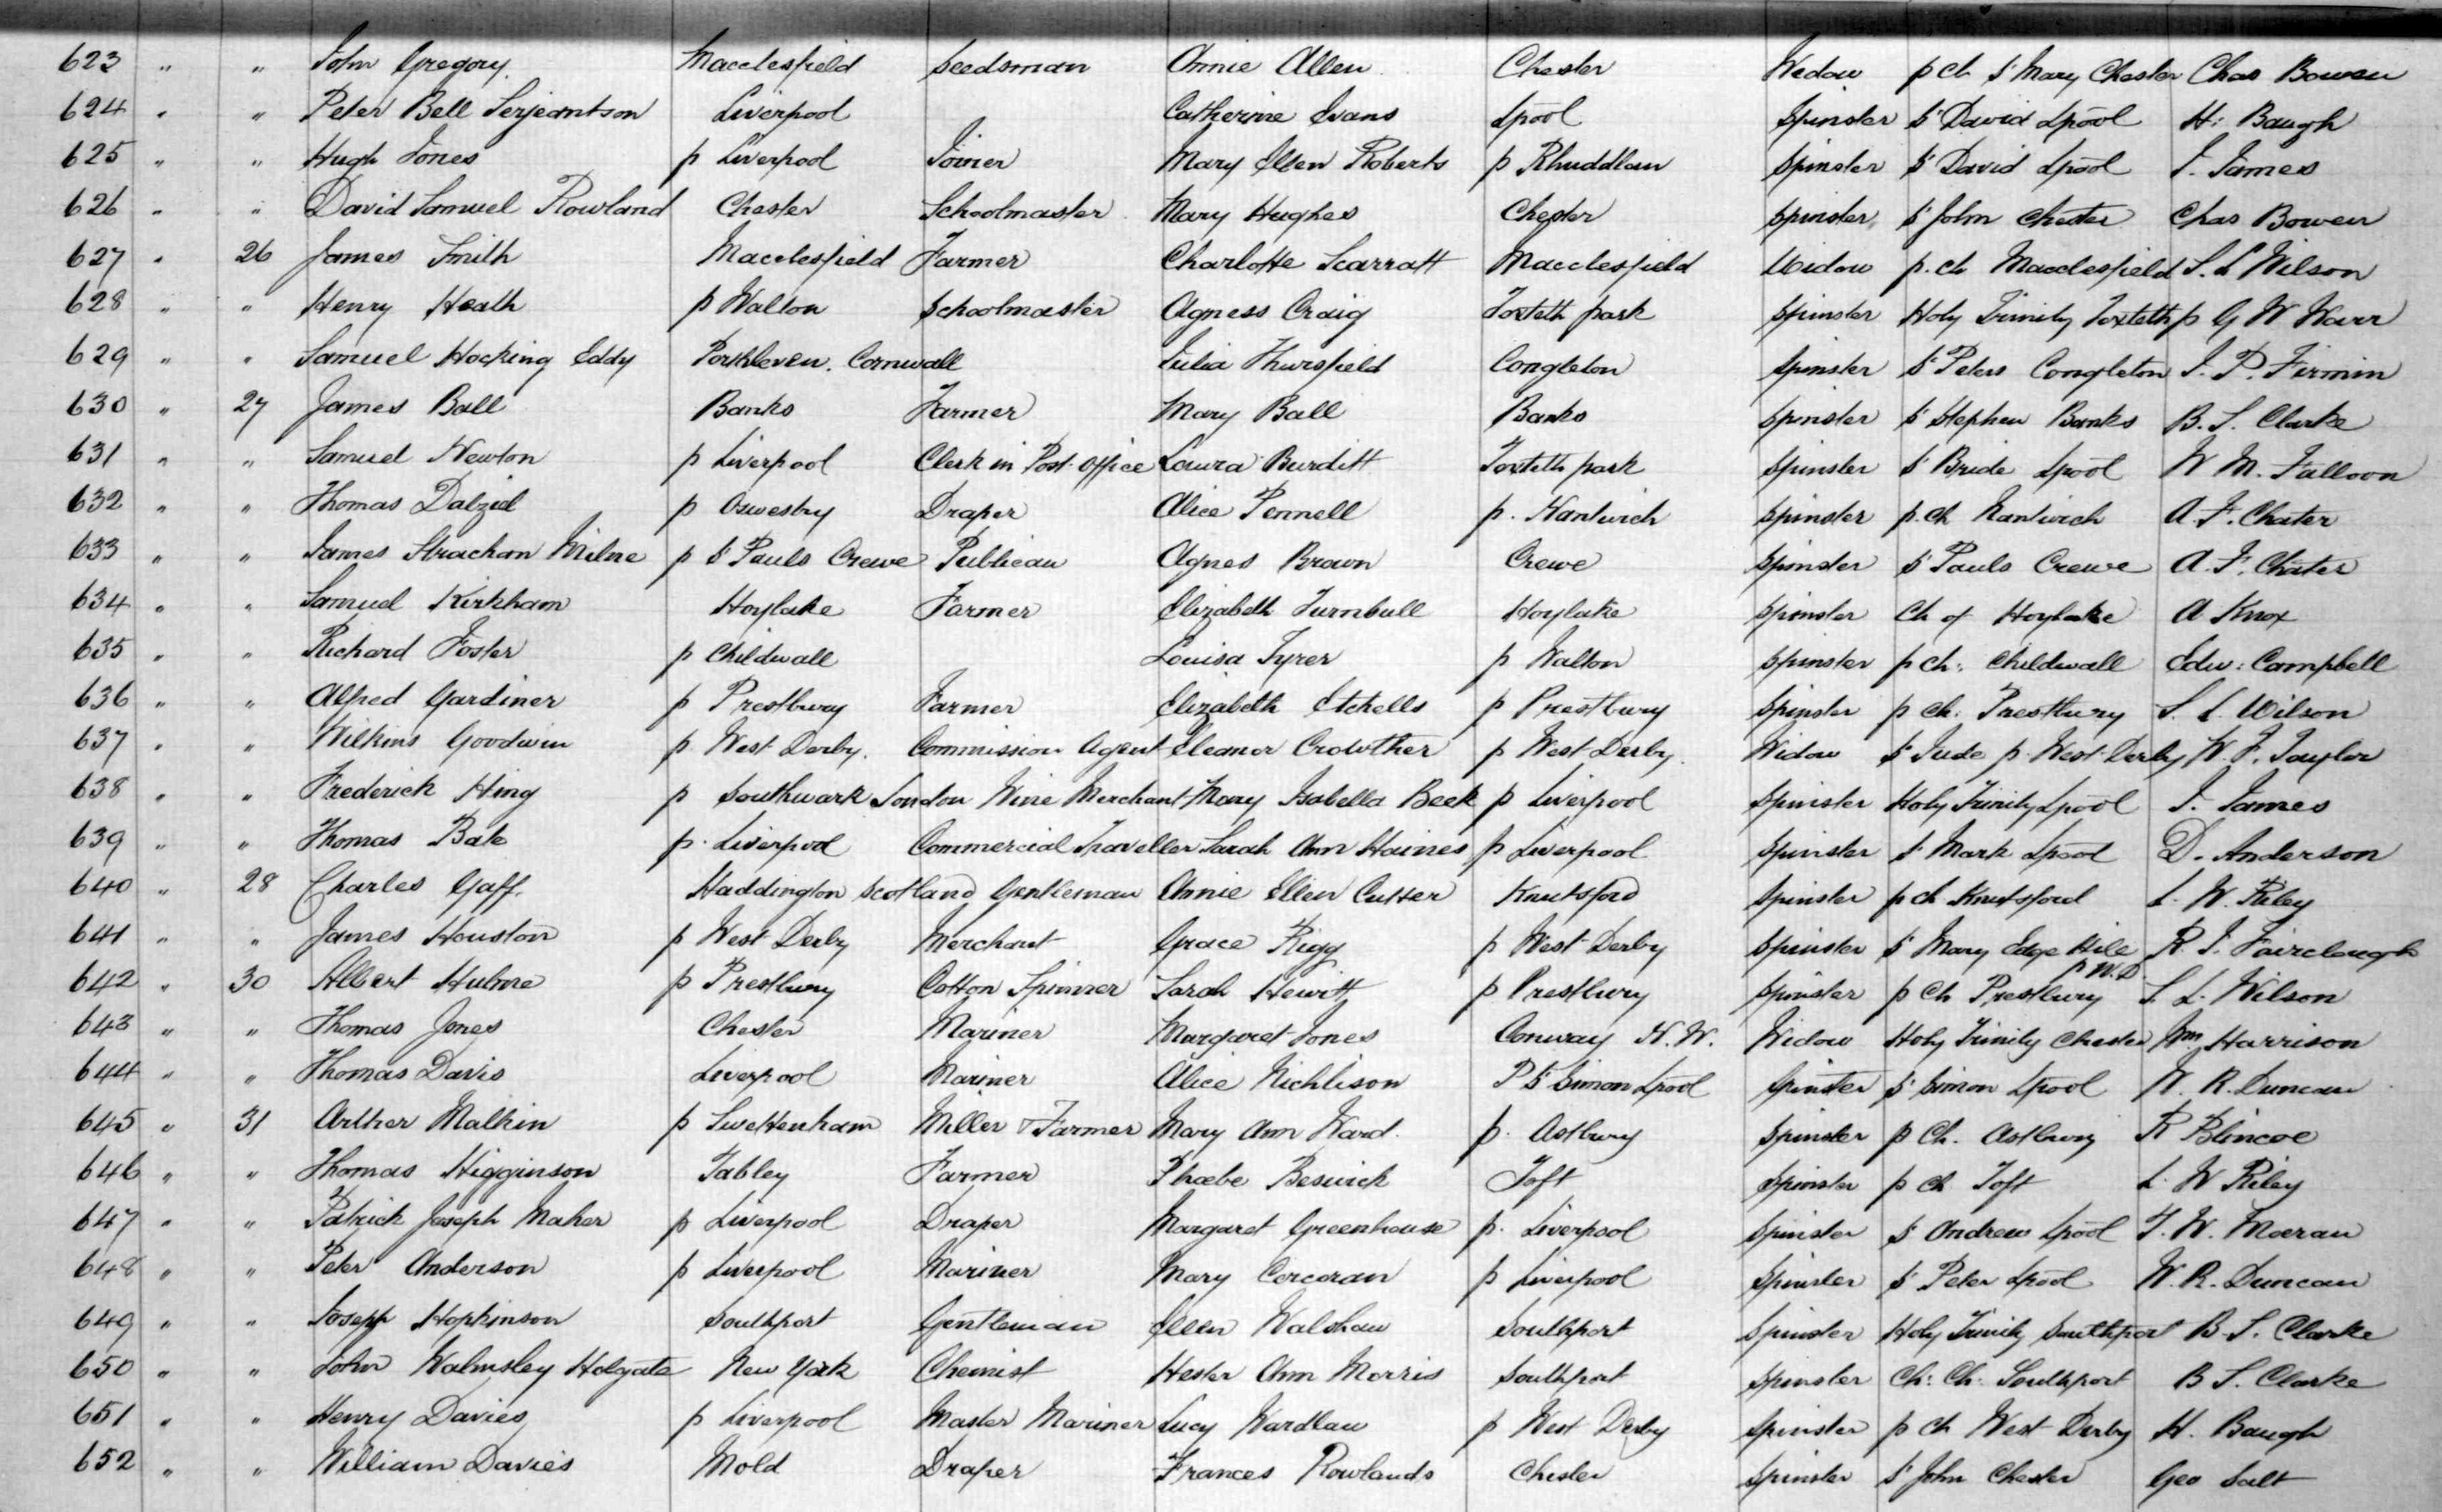 623 " " John Gregory Macclesfield Seedsman Annie Allen Chester Widow p ch St Mary Chester Chas Bowen
624 " " Peter Bell Serjeantson Liverpool Catherine Evans Lpool Spinster St David Lpool H: Baugh
625 " " Hugh Jones p Liverpool Joiner Mary Ellen Roberts p Rhuddlan Spinster St David Lpool J. James
626 " " David Samuel Rowland Chester Schoolmaster Mary Hughes Chester Spinster St John Chester Chas Bowen
627 " 26 James Smith Macclesfield Farmer Charlotte Scarratt Macclesfield Widow p. ch Macclesfield S. L Wilson
628 " " Henry Heath p Walton Schoolmaster Agness Craig Toxteth park Spinster Holy Trinity Toxteth p G W Warr
629 " " Samuel Hocking Eddy Porthleven. Cornwall Julia Thursfield Congleton Spinster St Peters Congleton J. P. Firmin
630 " 27 James Ball Banks Farmer Mary Ball Banks Spinster St Stephen Banks B. S. Clarke
631 " " Samuel Newton p Liverpool Clerk in Post Office Laura Burditt Toxteth park Spinster St Bride Lpool W M. Falloon
632 " " Thomas Dalziel p Oswestry Draper Alice Pennell p. Nantwich Spinster p. ch Nantwich A. F. Chater
633 " " James Strachan Milne p St Pauls Crewe Publican Agnes Brown Crewe Spinster St Pauls Crewe A. F. Chater
634 " " Samuel Kirkham Hoylake Farmer Elizabeth Turnbull Hoylake Spinster Ch of Hoylake A Knox
635 " " Richard Foster p Childwall Louisa Tyrer p Walton Spinster p ch: Childwall Edw: Campbell
636 " " Alfred Gardiner p Prestbury Farmer Elizabeth Etchells p Prestbury Spinster p ch: Prestbury S. L. Wilson
637 " " Wilkins Goodwin p. West Derby. Commission Agent Eleanor Crowther p West Derby. Widow St Jude p. West Derby W. F. Taylor
638 " " Frederick Hing p Southwark London Wine Merchant Mary Isabella Beek p Liverpool Spinster Holy Trinity Lpool J. James
639 " " Thomas Bate p. Liverpool Commercial Traveller Sarah Ann Haines p Liverpool Spinster St Mark Lpool D. Anderson
640 " 28 Charles Gaff. Haddington Scotland Gentleman Annie Ellen Cutter Knutsford Spinster p ch Knutsford L. W. Riley
641 " " James Houston p West Derby Merchant Grace Rigg p West Derby Spinster St Mary Edge Hill p W. D. R. J. Fairclough
642 " 30 Albert Hulme p Prestbury Cotton Spinner Sarah Hewitt p Prestbury Spinster p ch Prestbury S. L. Wilson
643 " " Thomas Jones Chester Mariner Margaret Jones Conway N. W. Widow Holy Trinity Chester Wm Harrison
644 " " Thomas Davis Liverpool Mariner Alice Nichlison P St Simon Lpool Spinster St Simon Lpool W. R. Duncan
645 " 31 Arther Malkin p Swettenham Miller & Farmer Mary Ann Ward. p. Astbury Spinster p Ch. Astbury R Blincoe
646 " " Thomas Higginson Tabley Farmer Phœbe Beswick Toft Spinster p ch Toft L. W Riley
647 " " Patrick Joseph Maher p Liverpool Draper Margaret Greenhouse p. Liverpool Spinster St Andrew Lpool T. W. Moeran
648 " " Peter Anderson p Liverpool Mariner Mary Corcoran p Liverpool Spinster St Peter Lpool W. R. Duncan
649 " " Joseph Hopkinson Southport Gentleman Ellen Walshaw Southport Spinster Holy Trinity Southport B. S. Clarke
650 " " John Walmsley Holgate New York Chemist Hester Ann Morris Southport Spinster Ch: Ch: Southport B S. Clarke
651 " " Henry Davies p Liverpool Master Mariner Lucy Wardlaw p West Derby Spinster p ch West Derby H. Baugh
652 " " William Davies Mold Draper Frances Rowlands Chester Spinster St John Chester Geo Salt